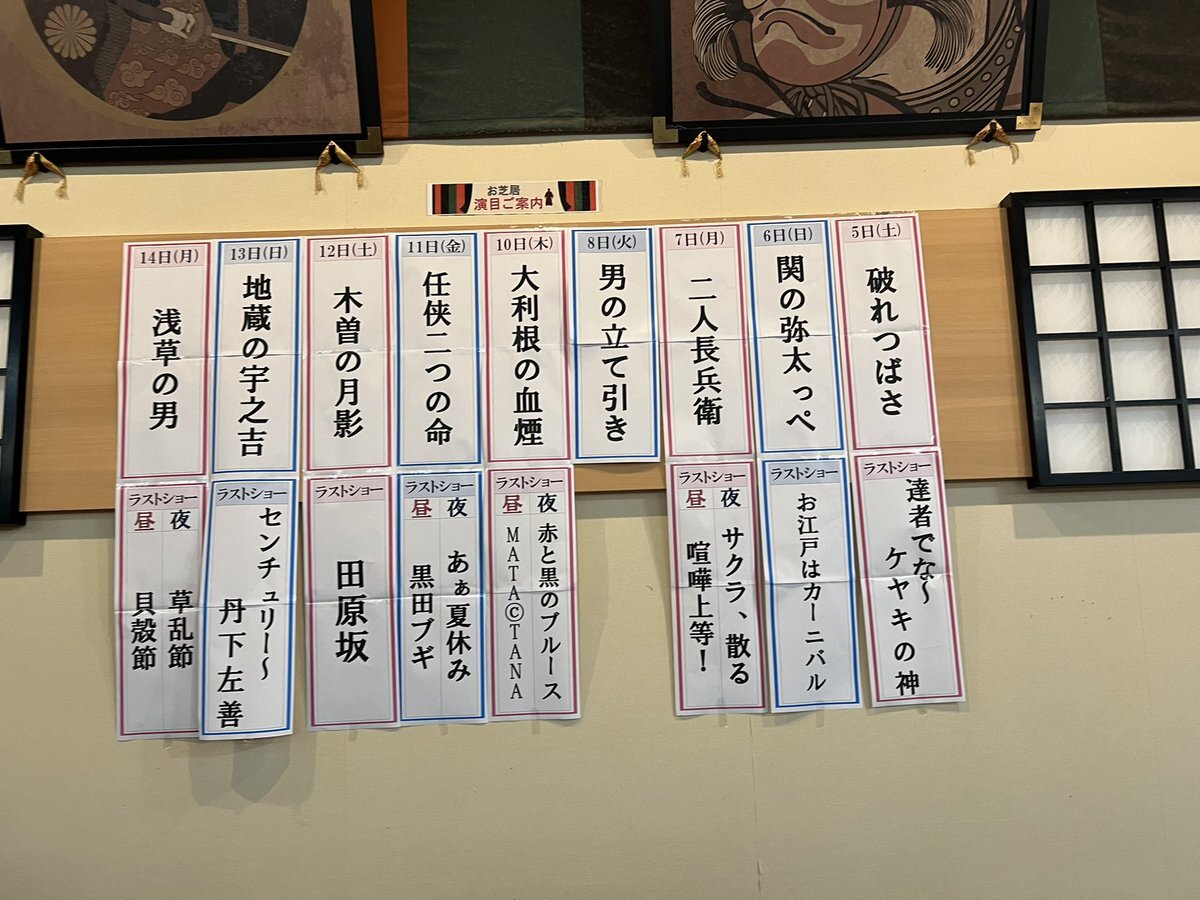 お芝居
演目ご案内
5日(土)
破れつばさ
ラストショー
達者でな〜
ケヤキの神
6日(日)
関の弥太っぺ
ラストショー
お江戸はカーニバル
7日(月)
二人長兵衛
ラストショー
夜
サクラ、散る
昼
喧嘩上等！
8日(火)
男の立て引き
10日(木)
大利根の血煙
ラストショー
夜
赤と黒のブルース
昼
MATAⓒTANA
11日(金)
任侠二つの命
ラストショー
夜
あぁ夏休み
昼
黒田ブギ
12日(土)
木曽の月影
ラストショー
田原坂
13日(日)
地蔵の宇之吉
ラストショー
センチュリー〜
丹下左善
14日(月)
浅草の男
ラストショー
夜
草乱節
昼
貝殻節